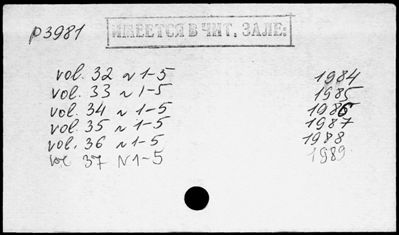 p3981
ИМЕЕТСЯ В ЧИТ. ЗАЛЕ:
vol. 32 N 1-5 1984
vol. 33 N 1-5 1985
vol. 34 N 1-5 1986
vol. 35 N 1-5 1987
vol. 36 N 1-5 1988
vol 37 N 1-5 1989